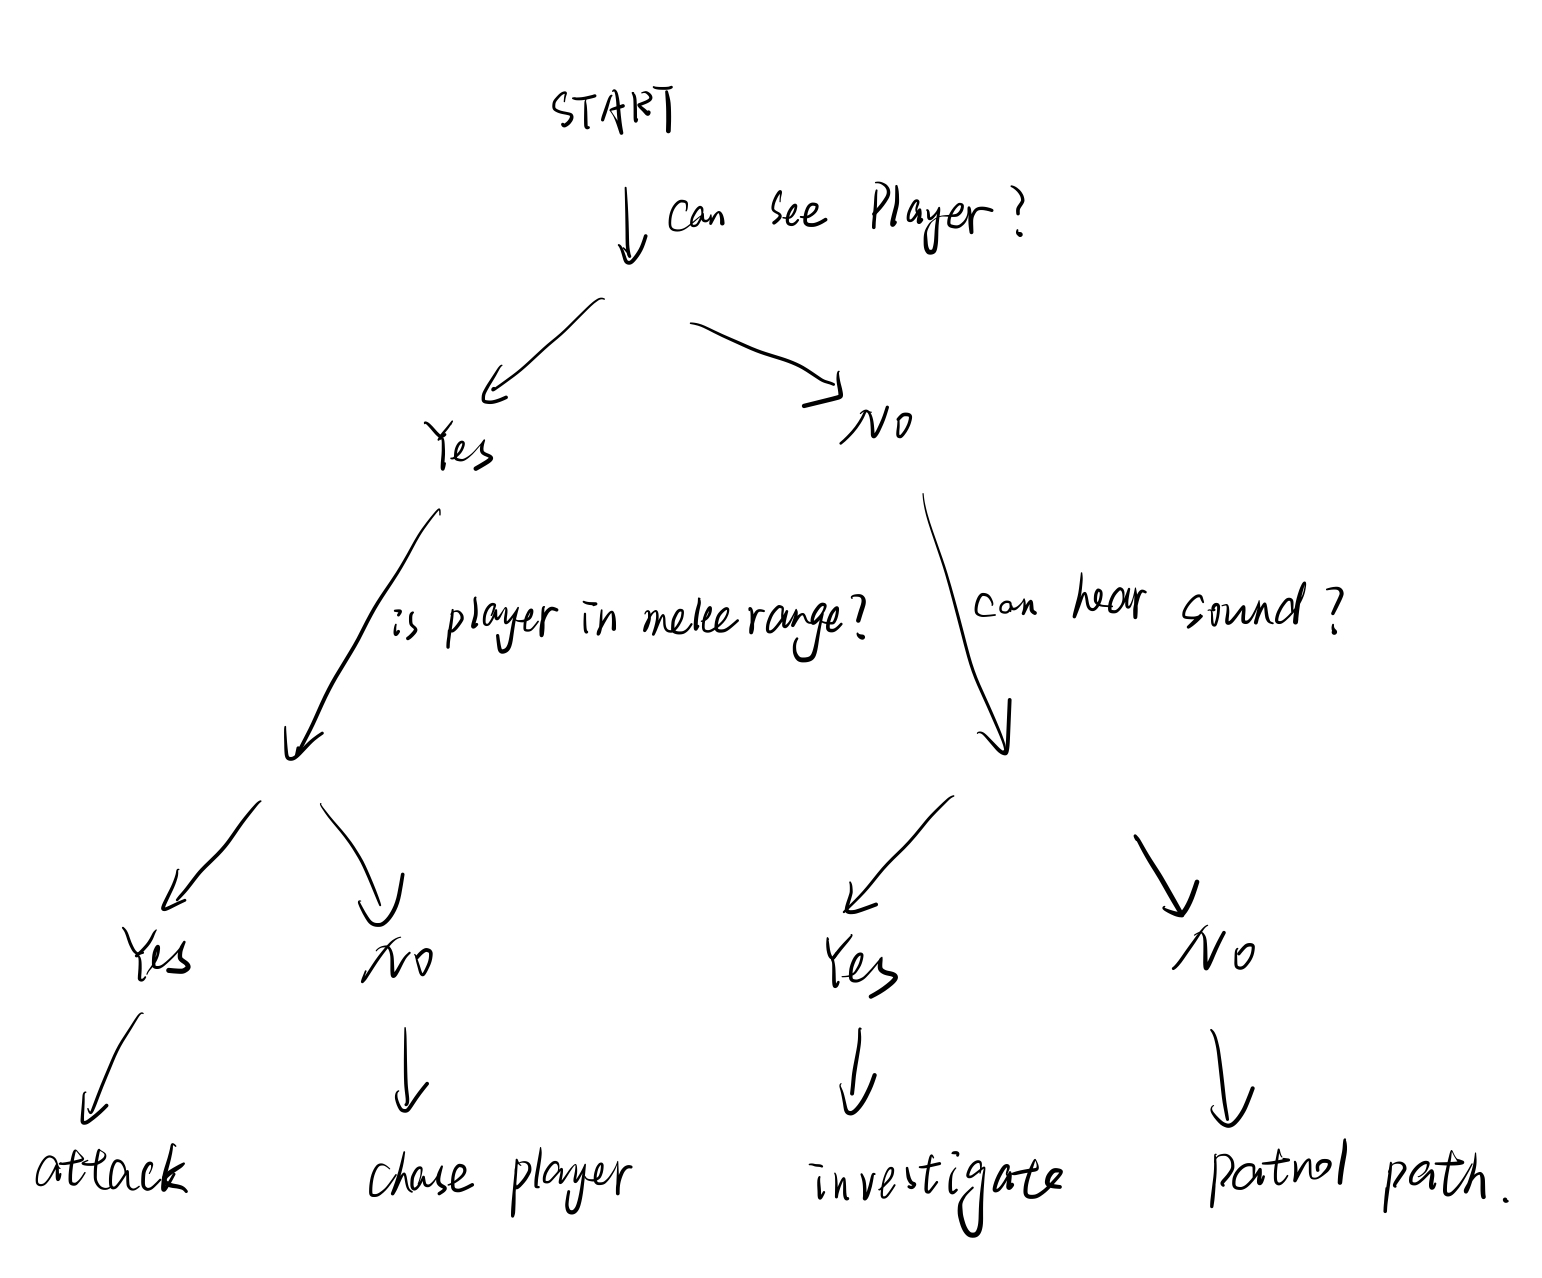 START
can see Player?
Yes
No
is player in melee range?
can hear sound?
Yes
No
Yes
No
attack
chase player
investigate
patrol path.